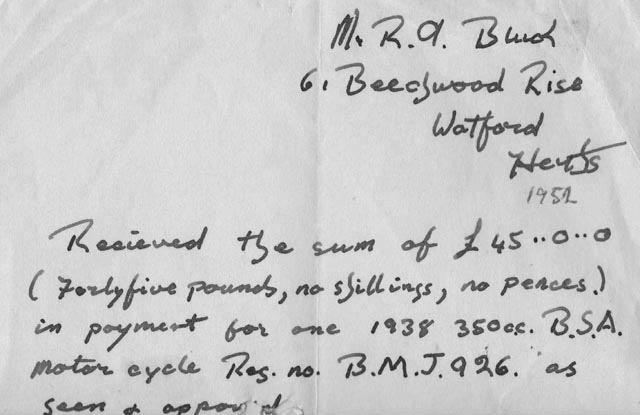 Mr R. A. 
61 Beechwood Rise
Watford
Herts
1952
Recieved the sum of £45..0..0
(Fortyfive pounds, no shillings, no pences.)
in payment for one 1938 350cc. B.S.A.
motor cycle Reg. no. B.M.J. 926. as
seen &